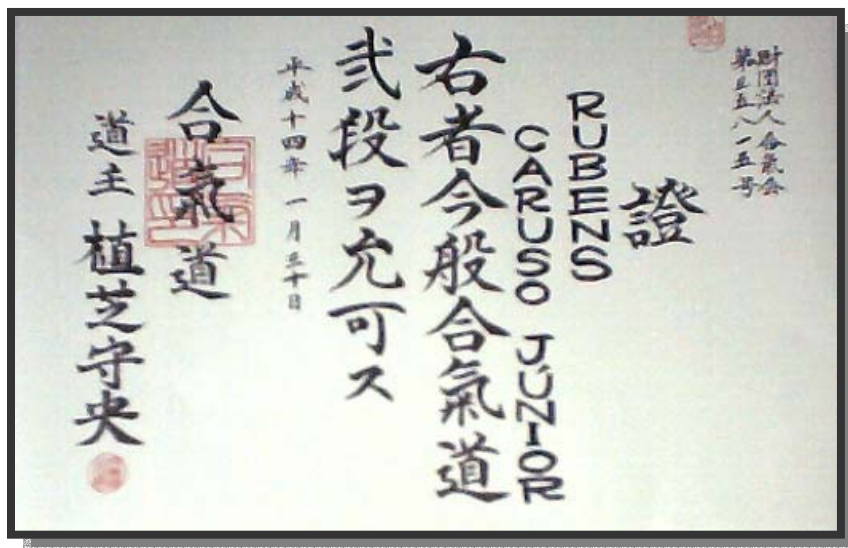 財団法人合氣会
證
RUBENS
CARUSO JÚNIOR
右者今般合氣道
弐段ヲ允可ス
平成十四年 一月三十日
合氣道
道主 植芝守央